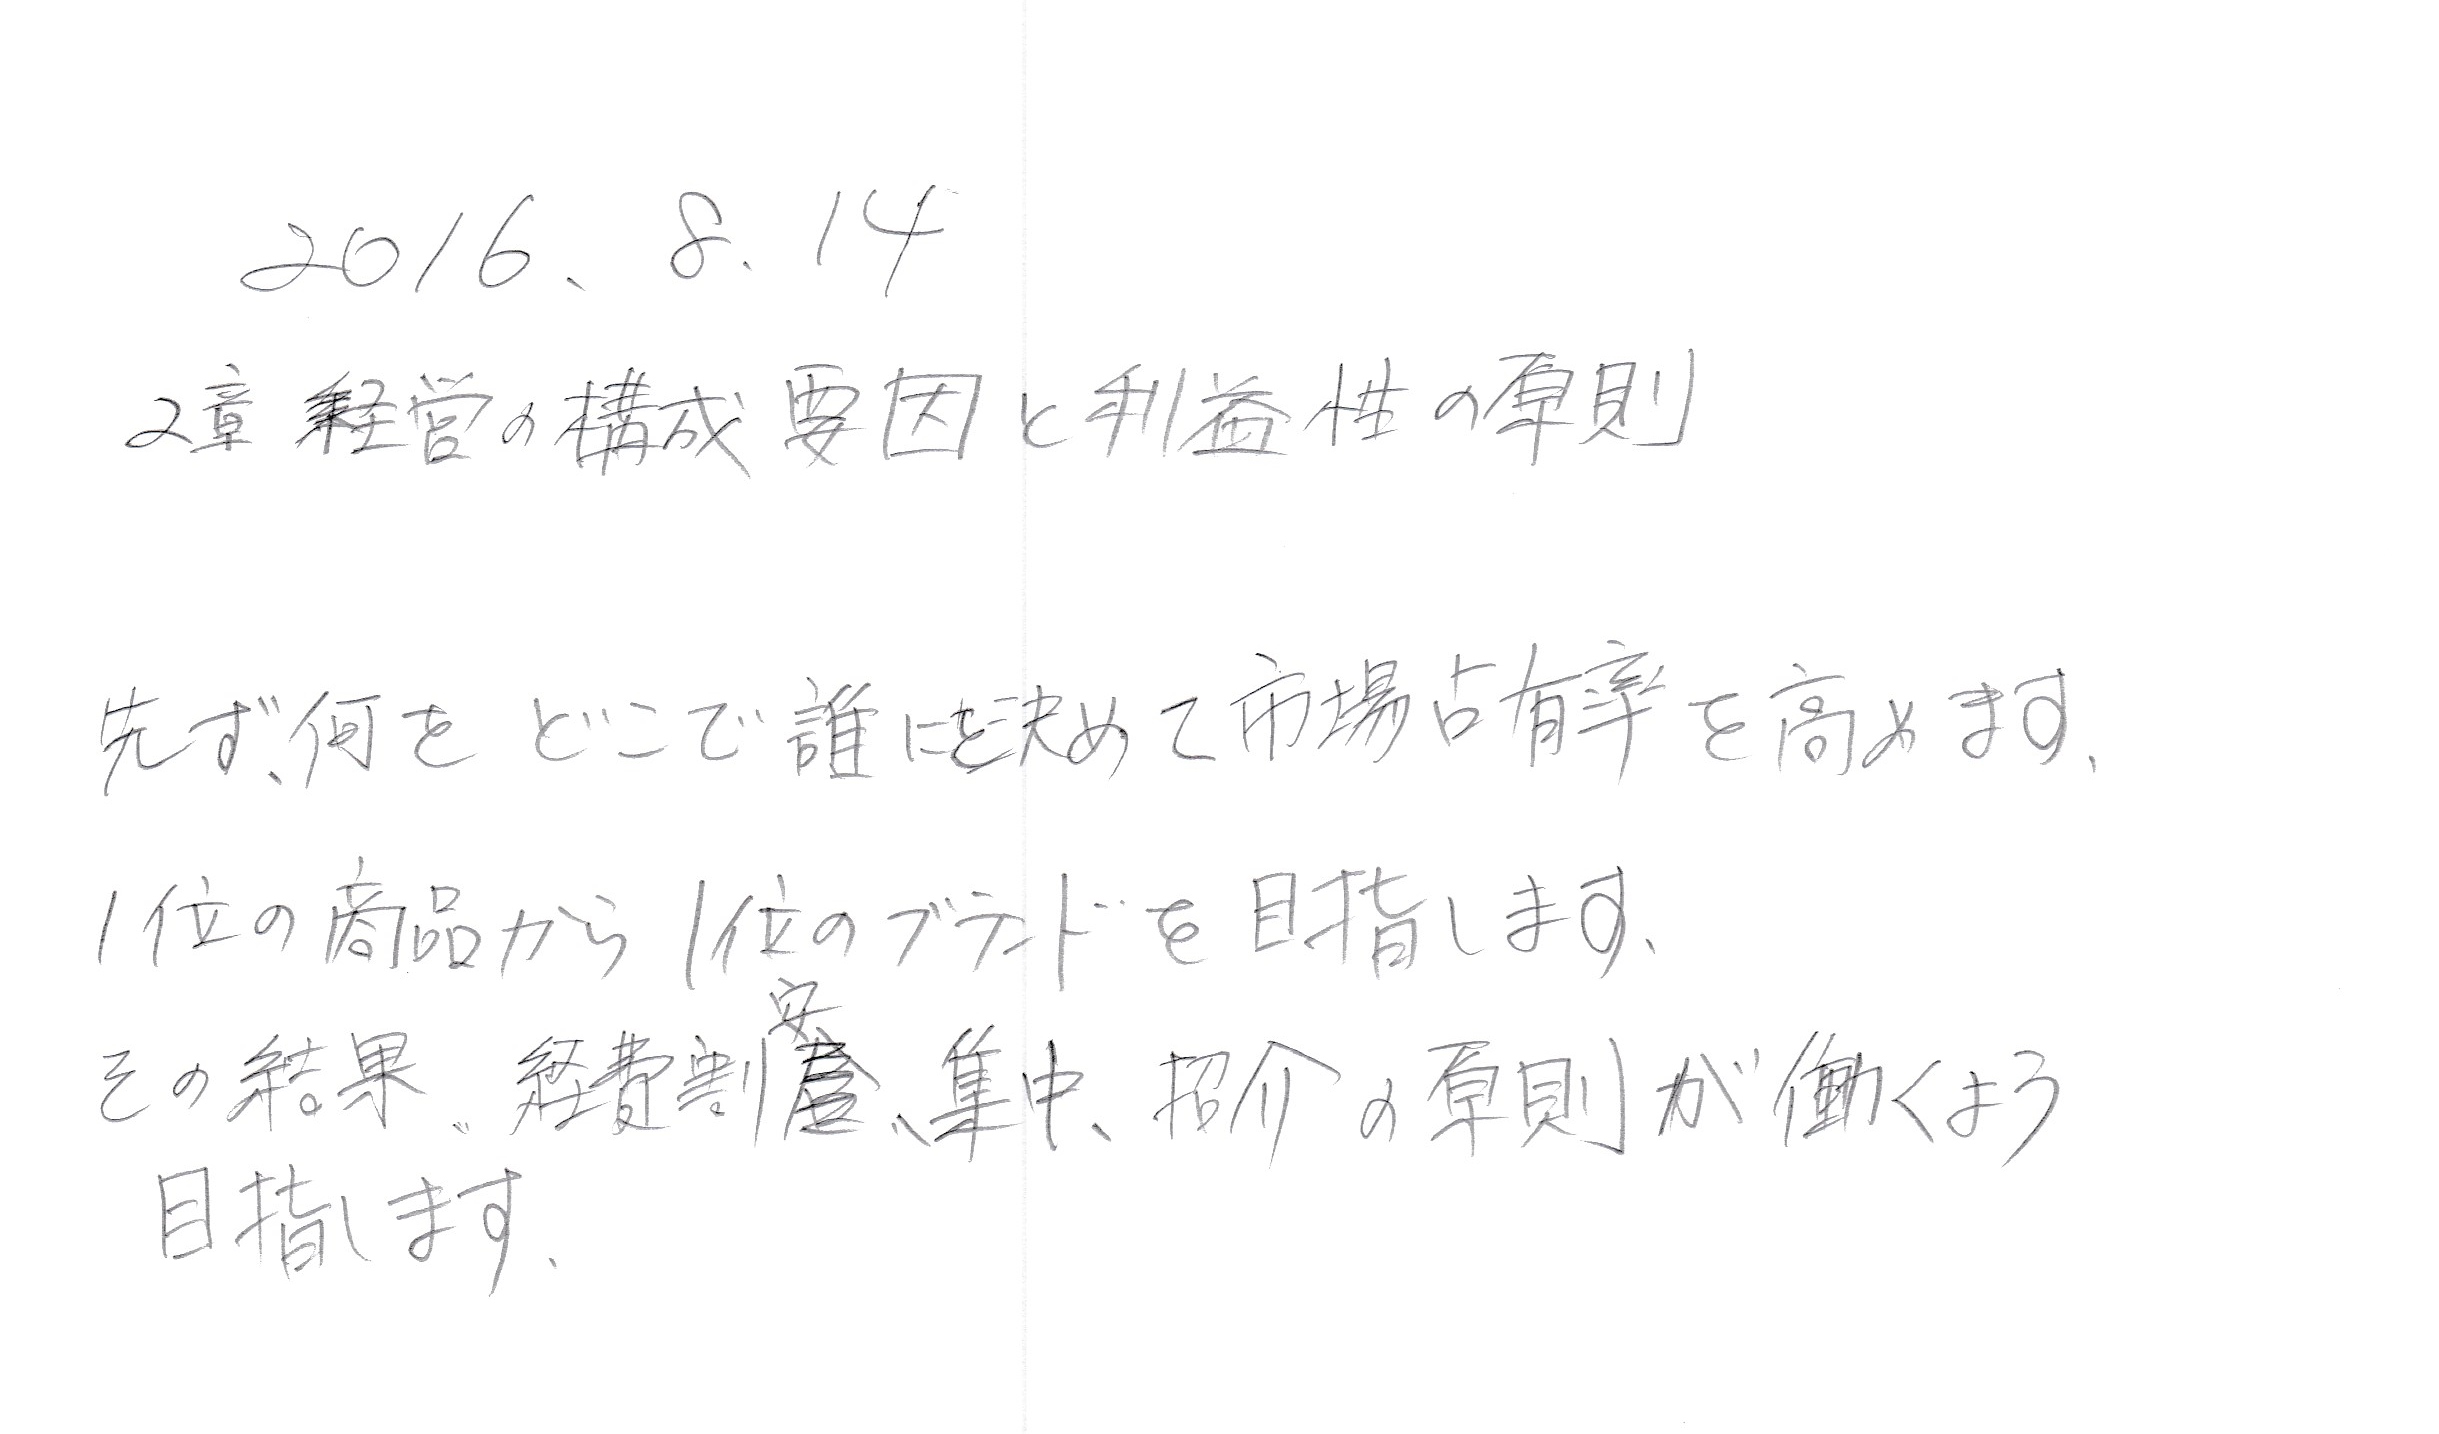 2016、8、14
2章 経営の構成要因と利益性の原則
先ず、何をどこで誰にを決めて市場占有率を高めます、
1位の商品から1位のブランドを目指します、
その結果、経費割安、集中、紹介の原則が働くよう
目指します、